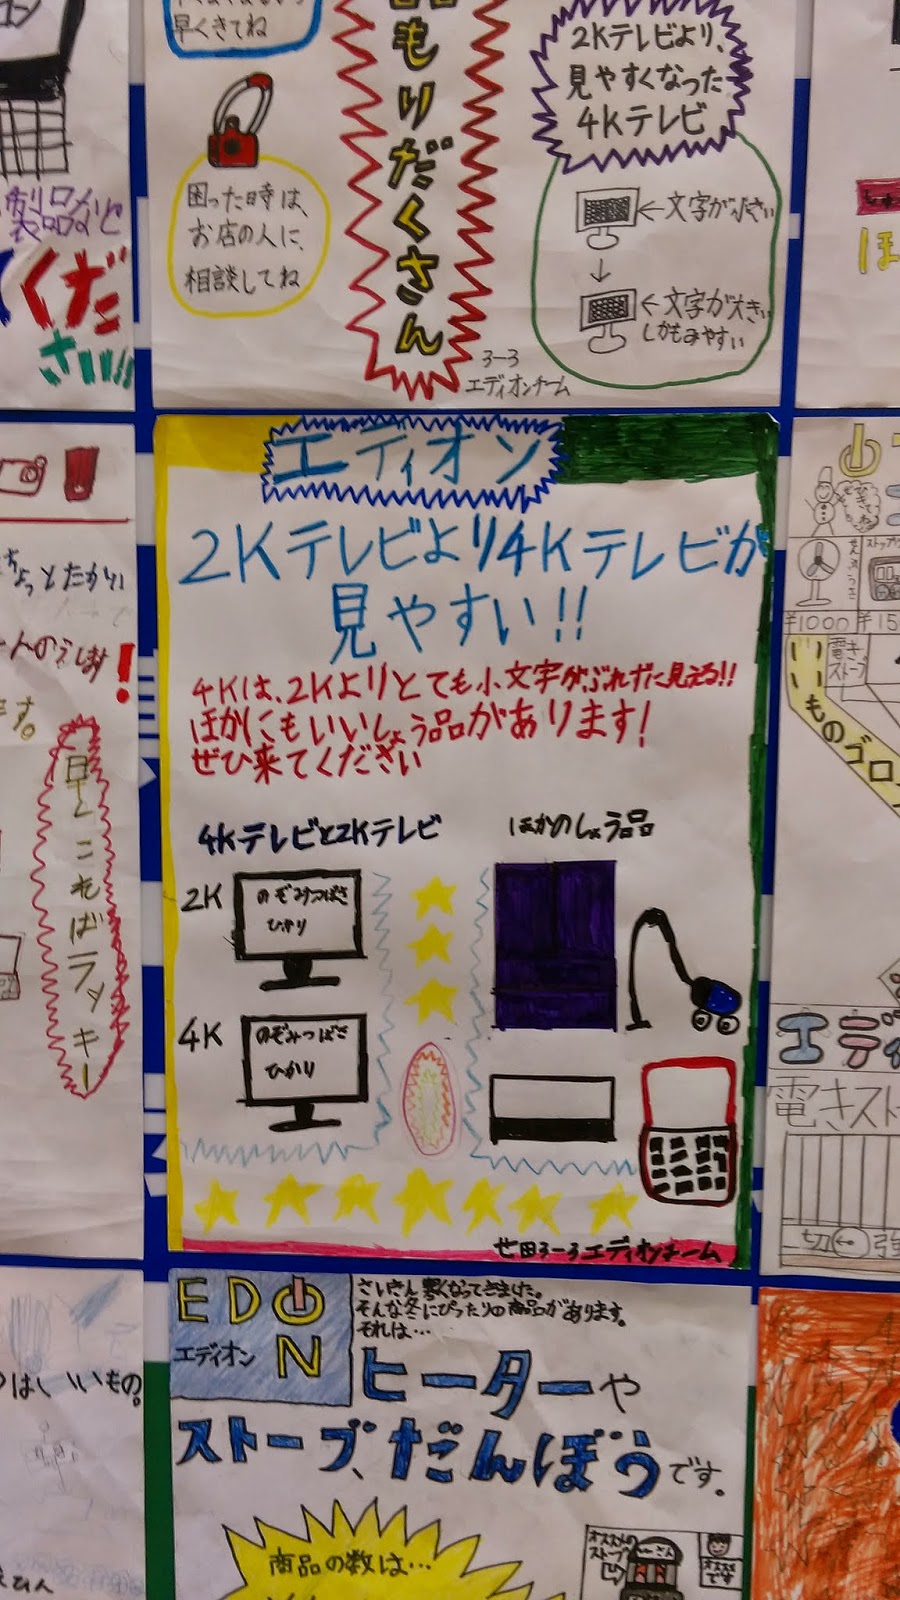 早くきてね
困った時は、
お店の人に、
相談してね
もりだくさん
2Kテレビより、
見やすくなった
4Kテレビ
←文字が小さい
↓
←文字が大きい
しかもみやすい
3-3
エディオンチーム
製品など
くだ
さい!!
エディオン
2Kテレビより4Kテレビが
見やすい!!
4Kは、2Kよりとても小文字がぶれずに見える!!
ほかにもいいしょう品があります!
ぜひ来てください
4Kテレビと2Kテレビ
ほかのしょう品
2K
のぞみつばさ
ひかり
4K
のぞみつばさ
ひかり
世田3-3エディオンチーム
ちょっとたかい
ます。
早くこればラッキー
¥1000
¥15
電き
ストーブ
ものゴロ
エデ
電きスト
切
強
EDON
エディオン
さいきん寒くなってきました。
そんな冬にぴったりの商品があります。
それは…
ヒーターや
ストーブ、だんぼうです。
商品の数は…
オススメの
ストーブ
オススメ
です
はいいもの。